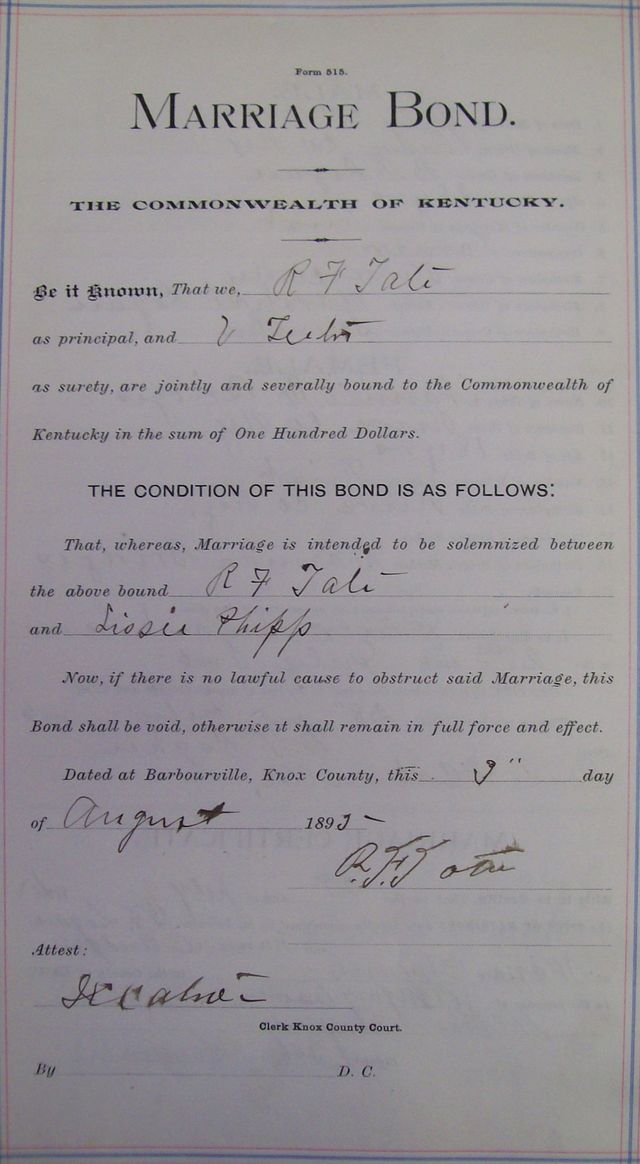 Form 515.
MARRIAGE BOND.
THE COMMONWEALTH OF KENTUCKY.
Be it Known, That we, R F Tate
as principal, and
as surety, are jointly and severally bound to the Commonwealth of
Kentucky in the sum of One Hundred Dollars.
THE CONDITION OF THIS BOND IS AS FOLLOWS:
That, whereas, Marriage is intended to be solemnized between
the above bound R F Tate
and Lissie Phipps
Now, if there is no lawful cause to obstruct said Marriage, this
Bond shall be void, otherwise it shall remain in full force and effect.
Dated at Barbourville, Knox County, this 9" day
of August 1895
R. F. Tate
Attest:
Clerk Knox County Court.
By D. C.